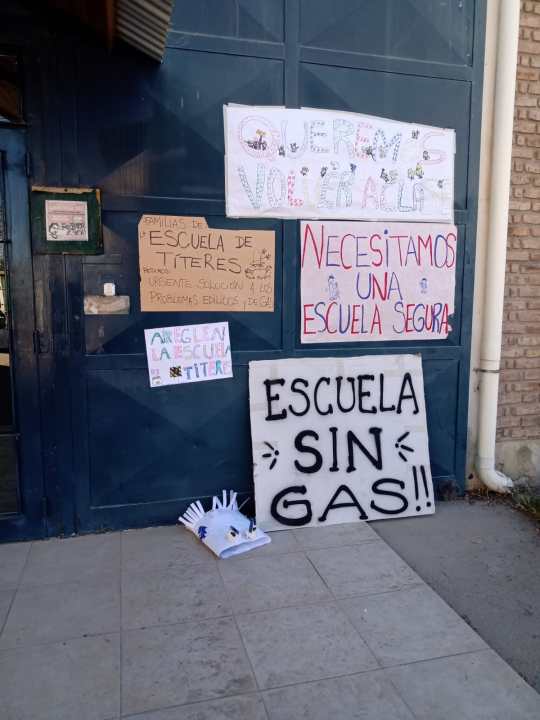 QUEREMOS
VOLVER A CLA
FAMILIAS DE
LA ESCUELA DE
TÍTERES
URGENTE SOLUCIÓN A LOS
PROBLEMAS EDILICIOS Y DE GAS
NECESITAMOS
UNA
ESCUELA SEGURA
ARREGLEN
LA ESCUELA
TITERE
ESCUELA
SIN
GAS!!